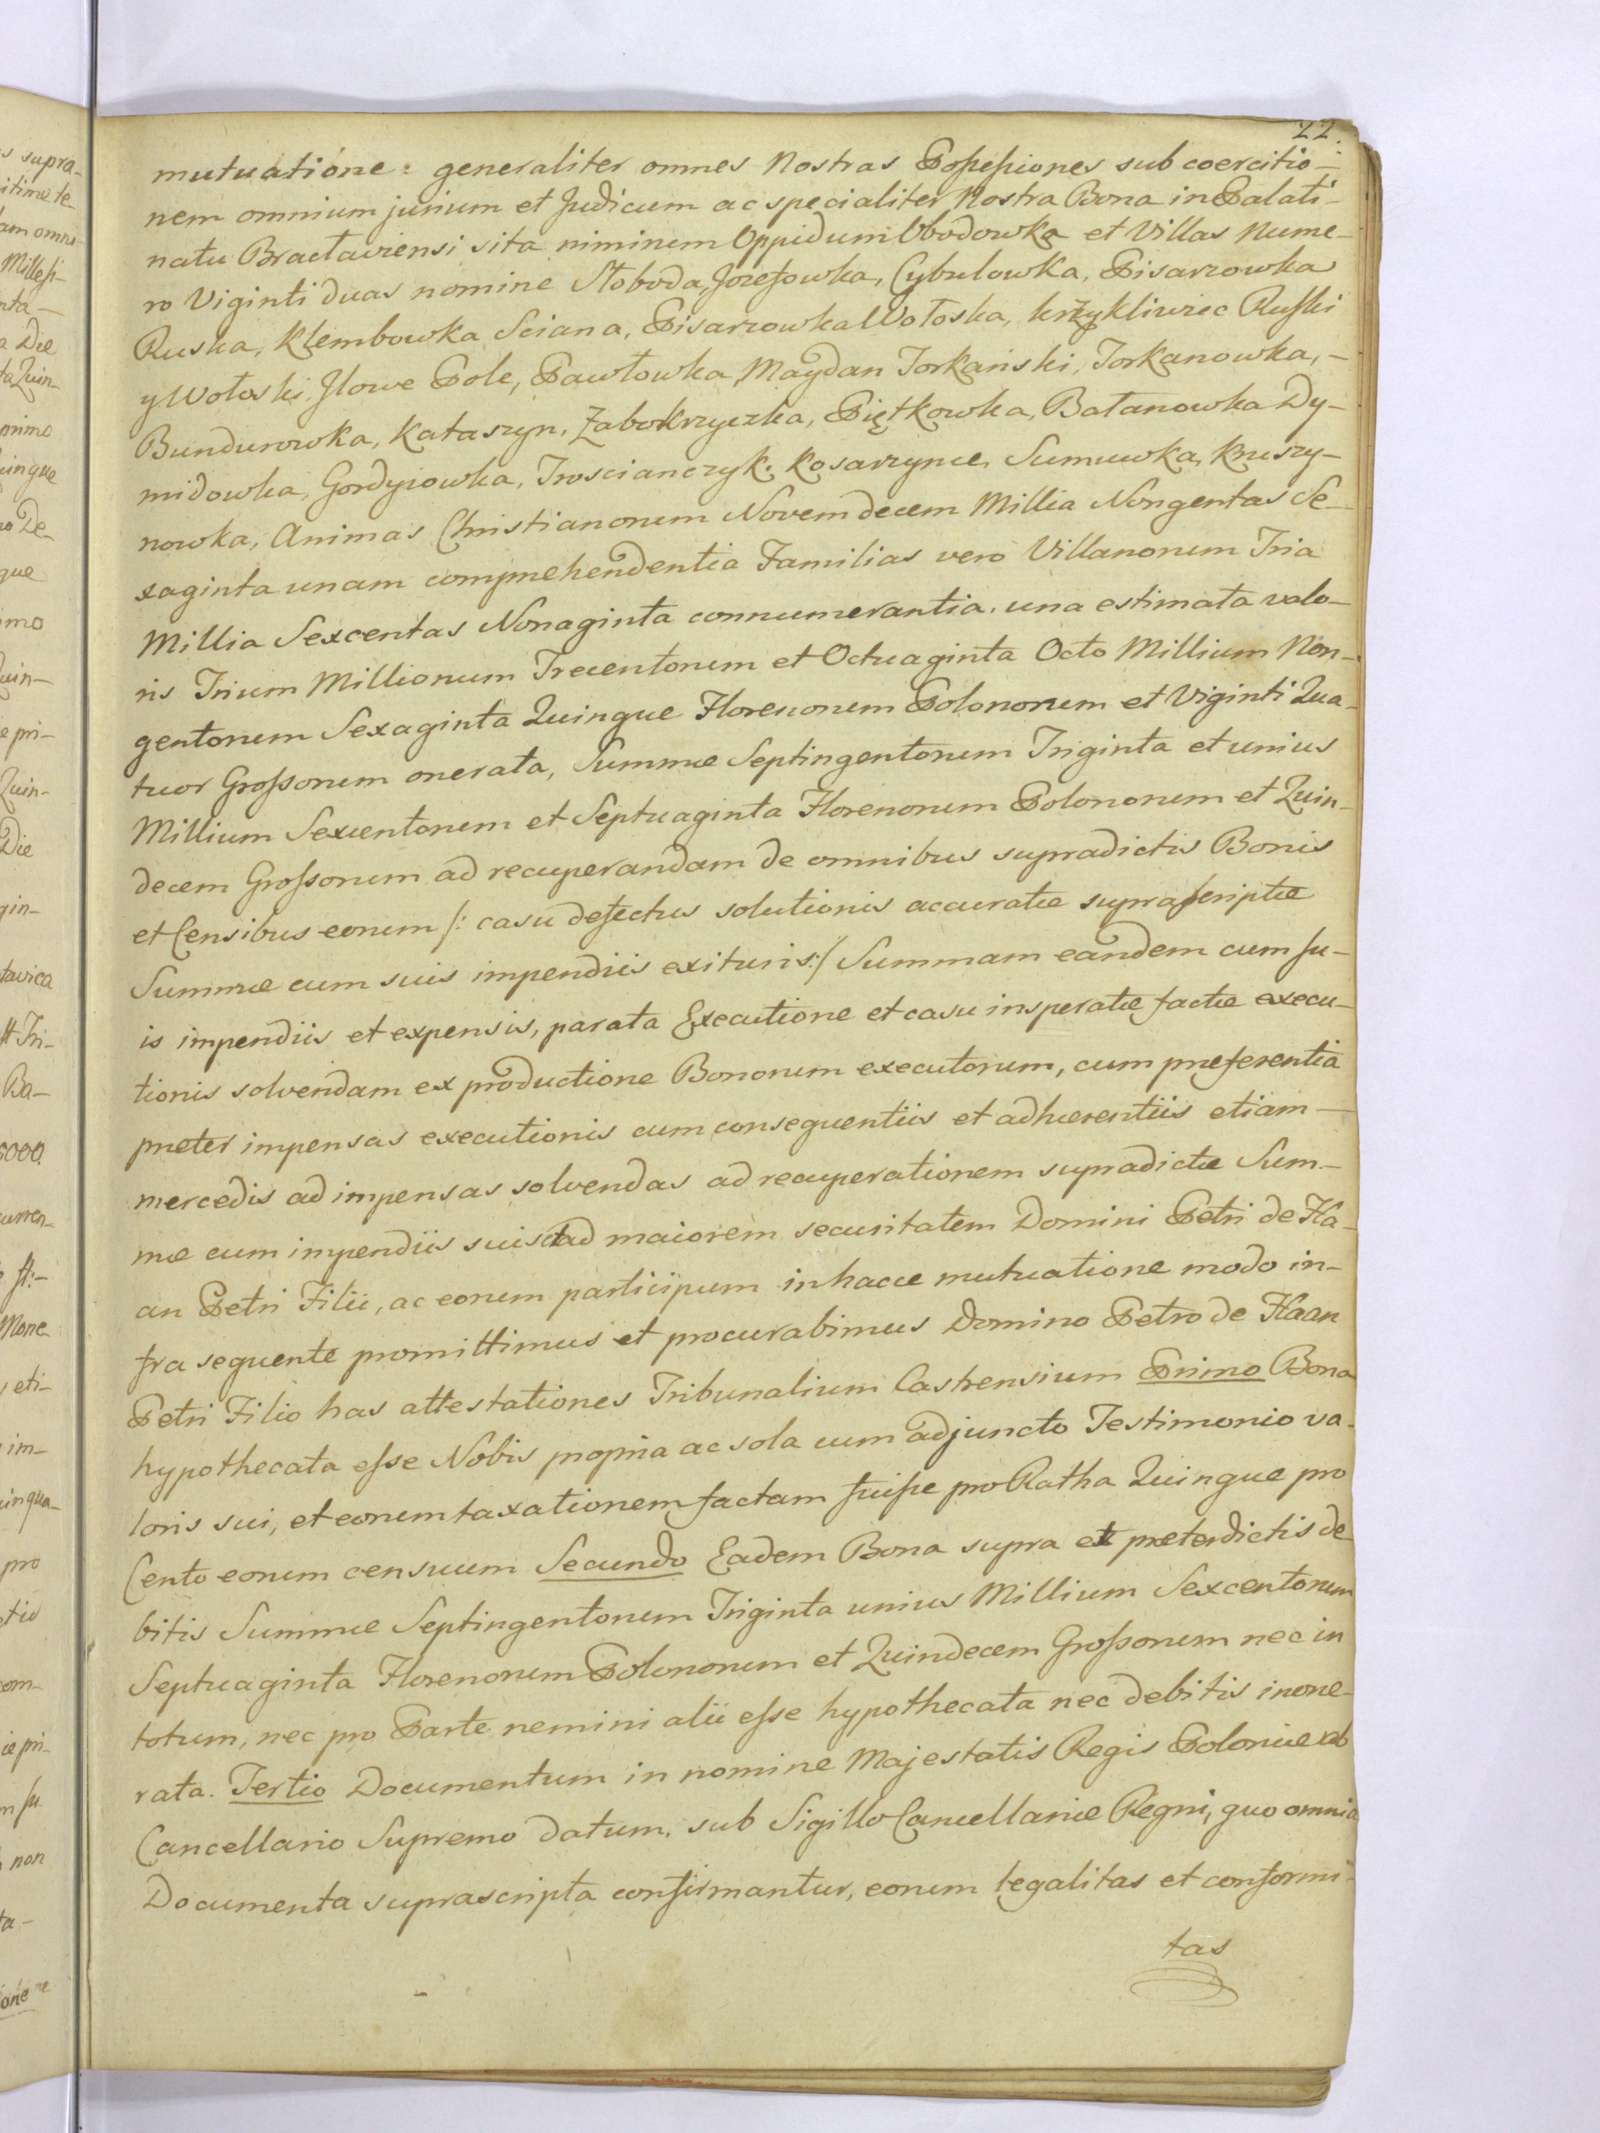 22.
mutuatione: generaliter omnes Nostras Possessiones sub coercitio-
nem omnium jurium et Judicum ac specialiter Nostra Bona in Palati-
natu Bractaviensi sita niminem Oppidum Obodowka et Villas Nume-
ro Viginti duas nomine Słoboda, Jozefowka, Cybulowka, Pisarzowka
Ruska, Klembowka Sciana, Pisarzowka Wołoska, krzykliwiec Ruski
y Wołoski, Jlowe Pole, Pawłowka, Maydan Torkański, Torkanowka,-
Bundurowka, Kataszyn, Zabokrzyczka, Piętkowka, Bałanowka Dy-
midowka, Gordyiowka, Troscianczyk, Kosarzynce, Sumowka, Kruszy-
nowka, Animas Christianorum Novemdecem Millia Nongentas Se-
xaginta unam comprehendentia Familias vero Villanorum Tria
Millia Sexcentas Nonaginta connumerantia, una estimata valo-
ris Trium Millionum Trecentorum et Octuaginta Octo Millium Non-
gentorum Sexaginta Quinque Florenorum Polonorum et Viginti Qua-
tuor Grossorum onerata, Summæ Septingentorum Triginta et unius
Millium Sexcentorum et Septuaginta Florenorum Polonorum et Quin-
decem Grossorum ad recuperandam de omnibus supradictis Bonis
et Censibus eorum /: casu defectus solutionis accuratæ suprascriptæ
Summæ cum suis impendiis exituris :/ Summam eandem cum su-
is impendiis et expensis, parata Executione et casu insperatæ factæ execu-
tionis solvendam ex productione Bonorum executorum, cum preferentia
præter impensas executionis cum consequentiis et adhærentiis etiam-
mercedis ad impensas solvendas ad recuperationem supradictæ Sum-
mæ cum impendiis suis ad maiorem securitatem Domini Petri de Ha-
an Petri Filii, ac eorum participum in hacce mutuatione modo in-
fra sequente promittimus et procurabimus Domino Petro de Haan
Petri Filio has attestationes Tribunalium Castrensium Primo Bona
hypothecata esse Nobis propria ac sola cum adjuncto Testimonio va-
loris sui, et eorum taxationem factam fuisse pro Ratha Quinque pro
Cento eorum censuum Secundo Eadem Bona supra et præterdictis de
bitis Summæ Septingentorum Triginta unius Millium Sexcentorum
Septuaginta Florenorum Polonorum et Quindecem Grossorum nec in
totum, nec pro Parte nemini alii esse hypothecata nec debitis inone-
rata. Tertio Documentum in nomine Majestatis Regis Poloniæ ab
Cancellario Supremo datum, sub Sigillo Cancellariæ Regni, quo omnia
Documenta suprascripta confirmantur, eorum legalitas et conformi-
tas